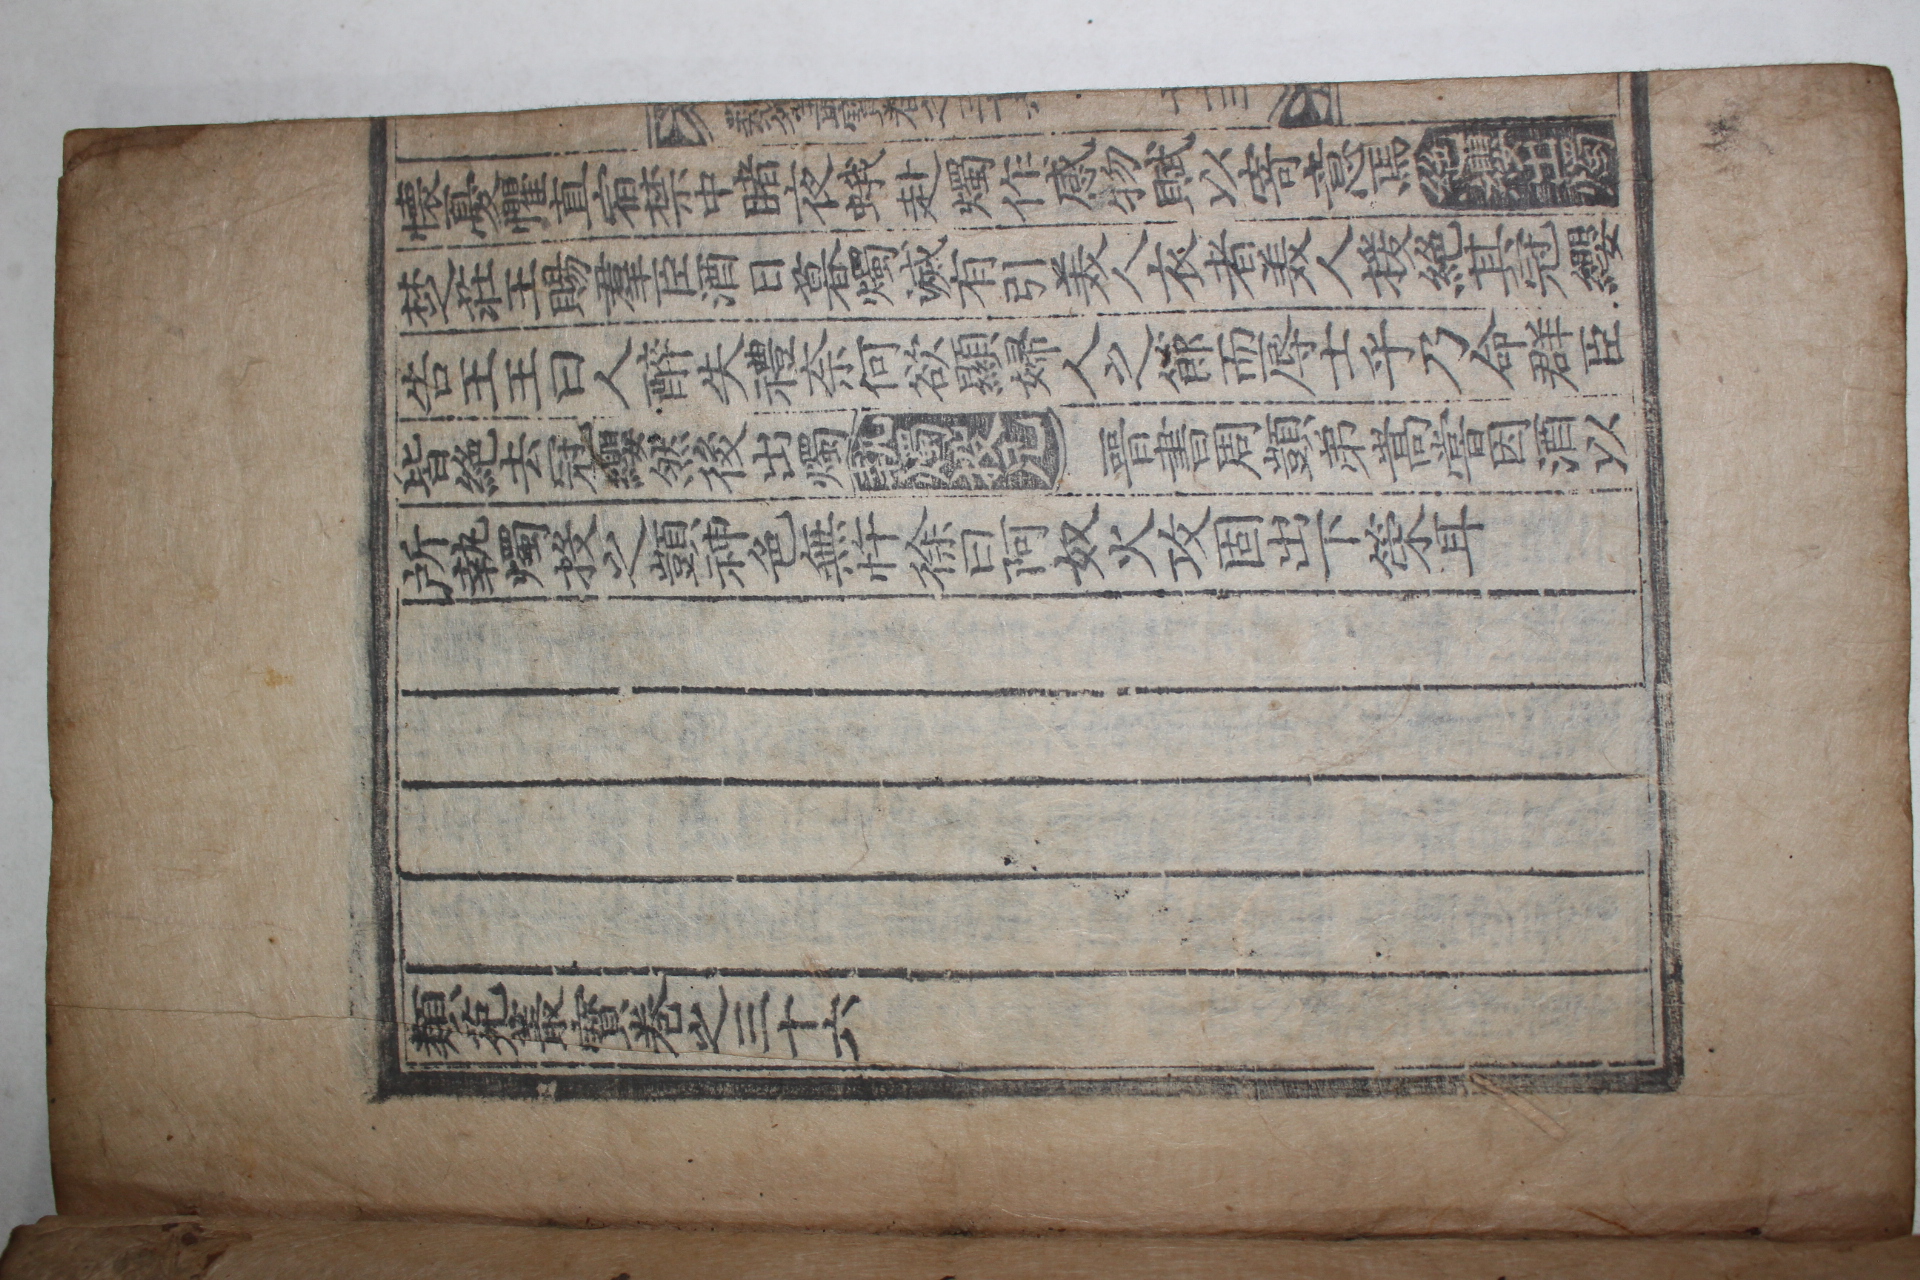 類苑叢寶卷之三十六 十三
懷憂懼直宿禁中睹夜蛾赴燭作感物賦以寄意焉絕纓出燭
楚莊王賜羣臣酒日暮燭滅有引美人衣者美人援絕其冠纓
告王王曰人醉失禮奈何欲顯婦人之節而辱士乎乃命群臣
皆絕去冠纓然後出燭執燭投兄 晉書周顗弟嵩嘗因酒以
所執燭投之顗神色無忤徐曰阿奴火攻固出下策耳
類苑叢寶卷之三十六